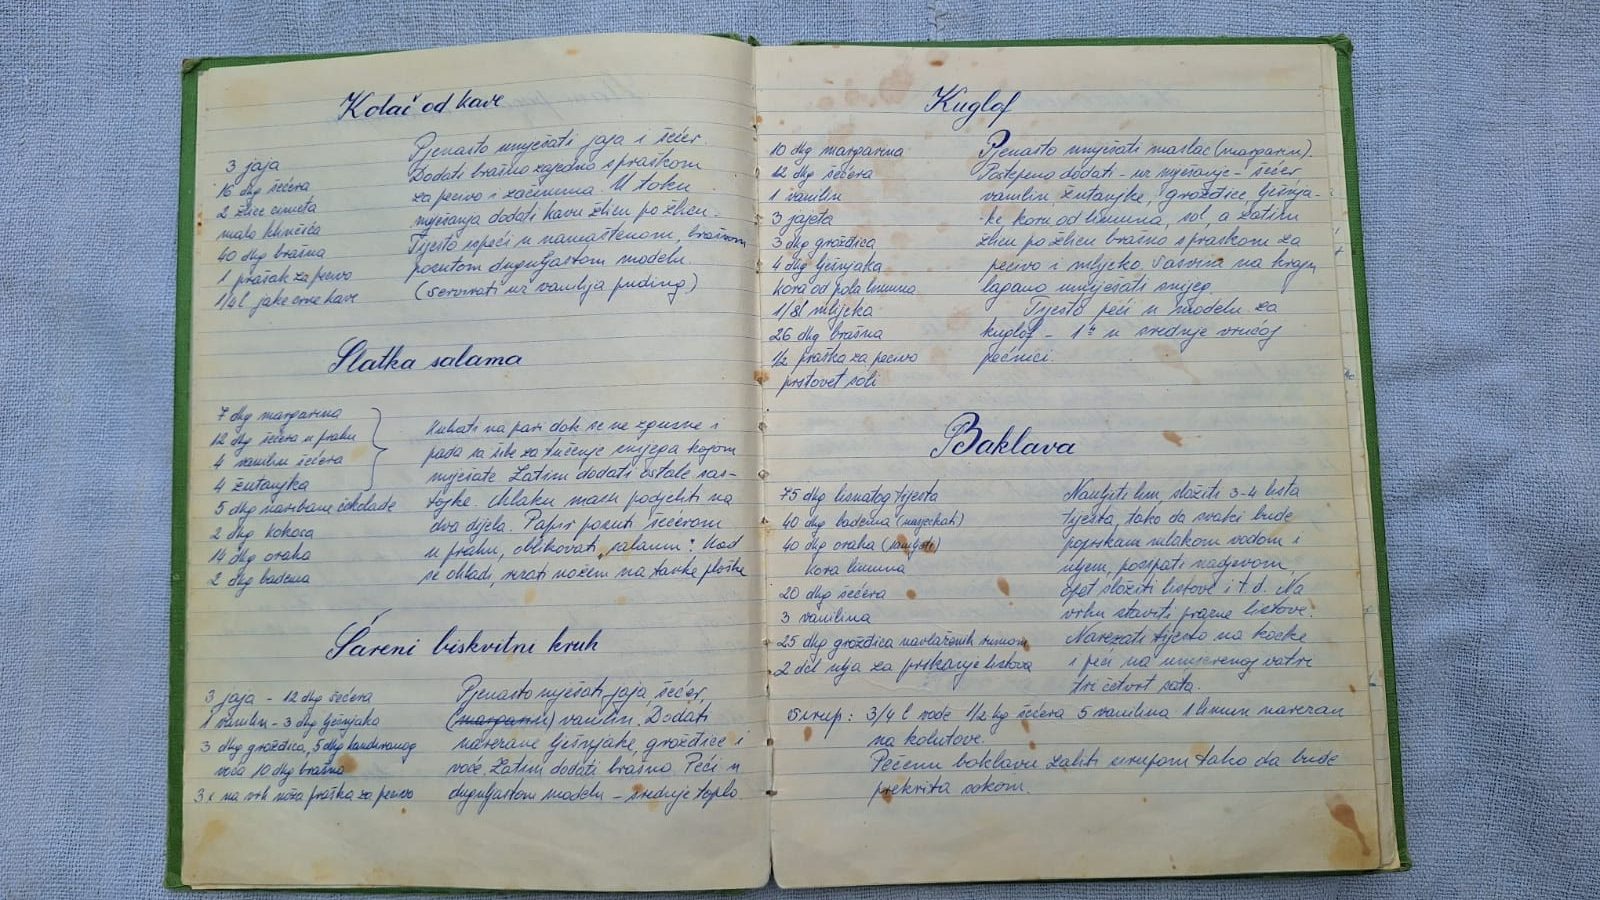 Kolač od kave
3 jaja
16 dkg šećera
2 žlice cimeta
malo klinčića
40 dkg brašna
1 prašak za pecivo
1/4 l jake crne kave
Pjenasto umješati jaja i šećer.
Dodati brašno zajedno s praškom
za pecivo i začinima. U toku
mješanja dodati kavu žlicu po žlicu.
Tijesto ispeći u namaštenom, brašnom
posutom duguljastom modelu.
(servirati uz vanilija puding)
Slatka salama
7 dkg margarina
12 dkg šećera u prahu
4 vanilin šećera
4 žutanjka
5 dkg naribane čokolade
2 dkg kokosa
14 dkg oraha
2 dkg badema
Kuhati na pari dok se ne zgusne i
pada sa šibe za tučenje snijega kojom
mješate. Zatim dodati ostale sas-
tojke. Ohlađenu masu podjeliti na
dva dijela. Papir posuti šećerom
u prahu, oblikovati „salamu". Kad
se ohladi, rezati nožem na tanke ploške
Šareni biskvitni kruh
3 jaja - 12 dkg šećera
1 vanilin - 3 dkg lješnjaka
3 dkg grožđica, 5 dkg kandiranog
voća 10 dkg brašna
3 x na vrh noža praška za pecivo
Pjenasto mješati jaja, šećer,
(margarin) vanilin. Dodati
narezane lješnjake, grožđice i
voće. Zatim dodati brašno. Peći u
duguljastom modelu - srednje toplo
Kuglof
10 dkg margarina
12 dkg šećera
1 vanilin
3 jajeta
3 dkg grožđica
4 dkg lješnjaka
kora od pola limuna
1/8 l mlijeka
26 dkg brašna
1/2 praška za pecivo
prstovet soli
Pjenasto umješati maslac (margarin).
Postepeno dodati - uz mješanje - šećer
vanilin žutanjke, grožđice lješnja-
ke koru od limuna, sol, a zatim
žlicu po žlicu brašno s praškom za
pecivo i mlijeko. Sasvim na kraju
lagano umiješati snijeg.
Tijesto peći u modelu za
kuglof - 1h u srednje vrućoj
pećnici.
Baklava
75 dkg lisnatog tijesta
40 dkg badema (nasjeckati)
40 dkg oraha (samljeti)
kora limuna
20 dkg šećera
3 vanilina
25 dkg grožđica navlaženih rumom
2 dcl ulja za prskanje listova
Nauljiti lim složiti 3-4 lista
tijesta, tako da svaki bude
poprskan mlakom vodom i
uljem, posipati nadjevom,
opet složiti listove i t.d. Na
vrhu staviti prazne listove.
Narezati tijesto na kocke
i peći na umjerenoj vatri
tri četvrt sata.
Sirup: 3/4 l vode 1/2 kg šećera 5 vanilina 1 limun narezan
na kolutove.
Pečenu baklavu zaliti sirupom tako da bude
prekrita sokom.